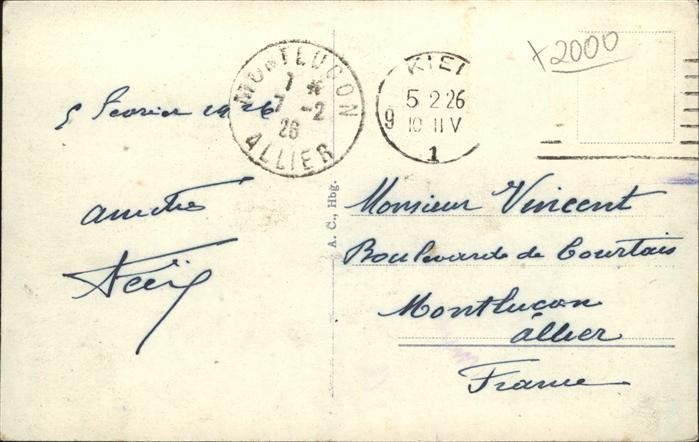 MONTLUCON
7 *
7 -2
26
ALLIER
KIEL
5 2 26
9 10-11 V
1
x2000
5 février 1926
A. C., Hbg.
Monsieur Vincent
Boulevard de Courtais
Montlucon
Allier
France